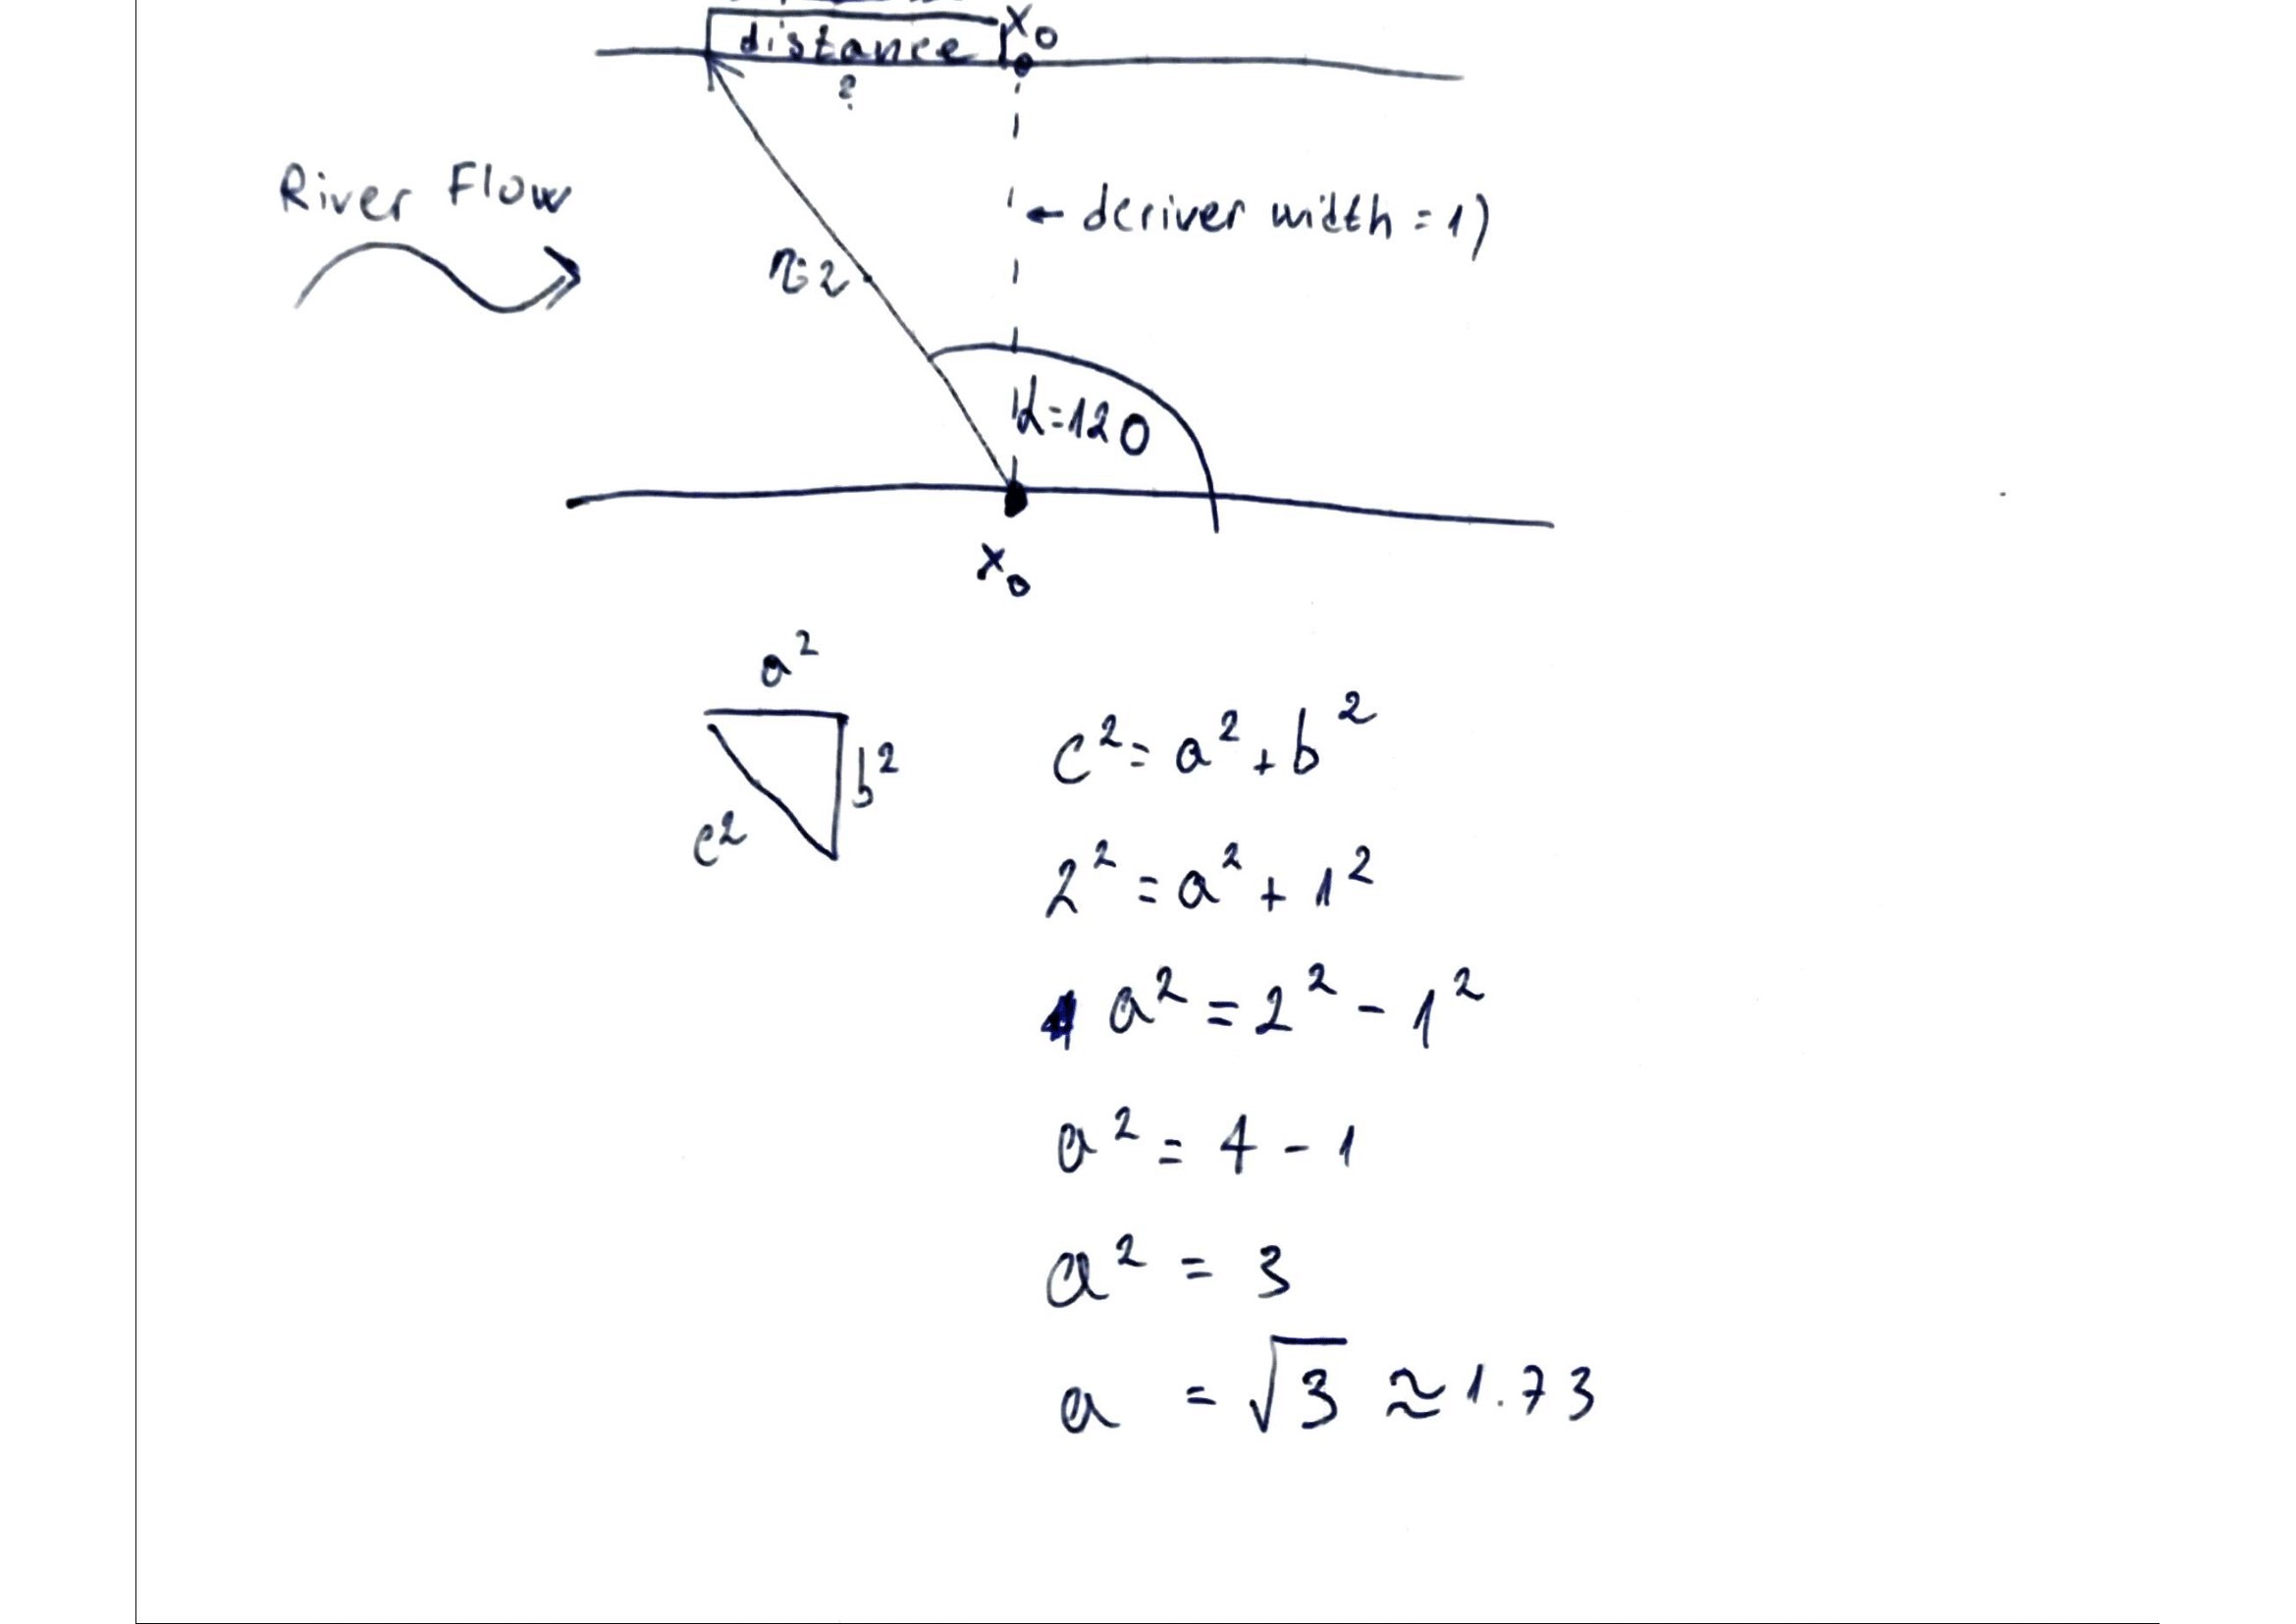 x₀
distance
?
River Flow
← deriver width = 1)
r=2
α=120
x₀
a²
b²
c²
c² = a² + b²
2² = a² + 1²
a² = 2² - 1²
a² = 4 - 1
a² = 3
a = √3 ≈ 1.73